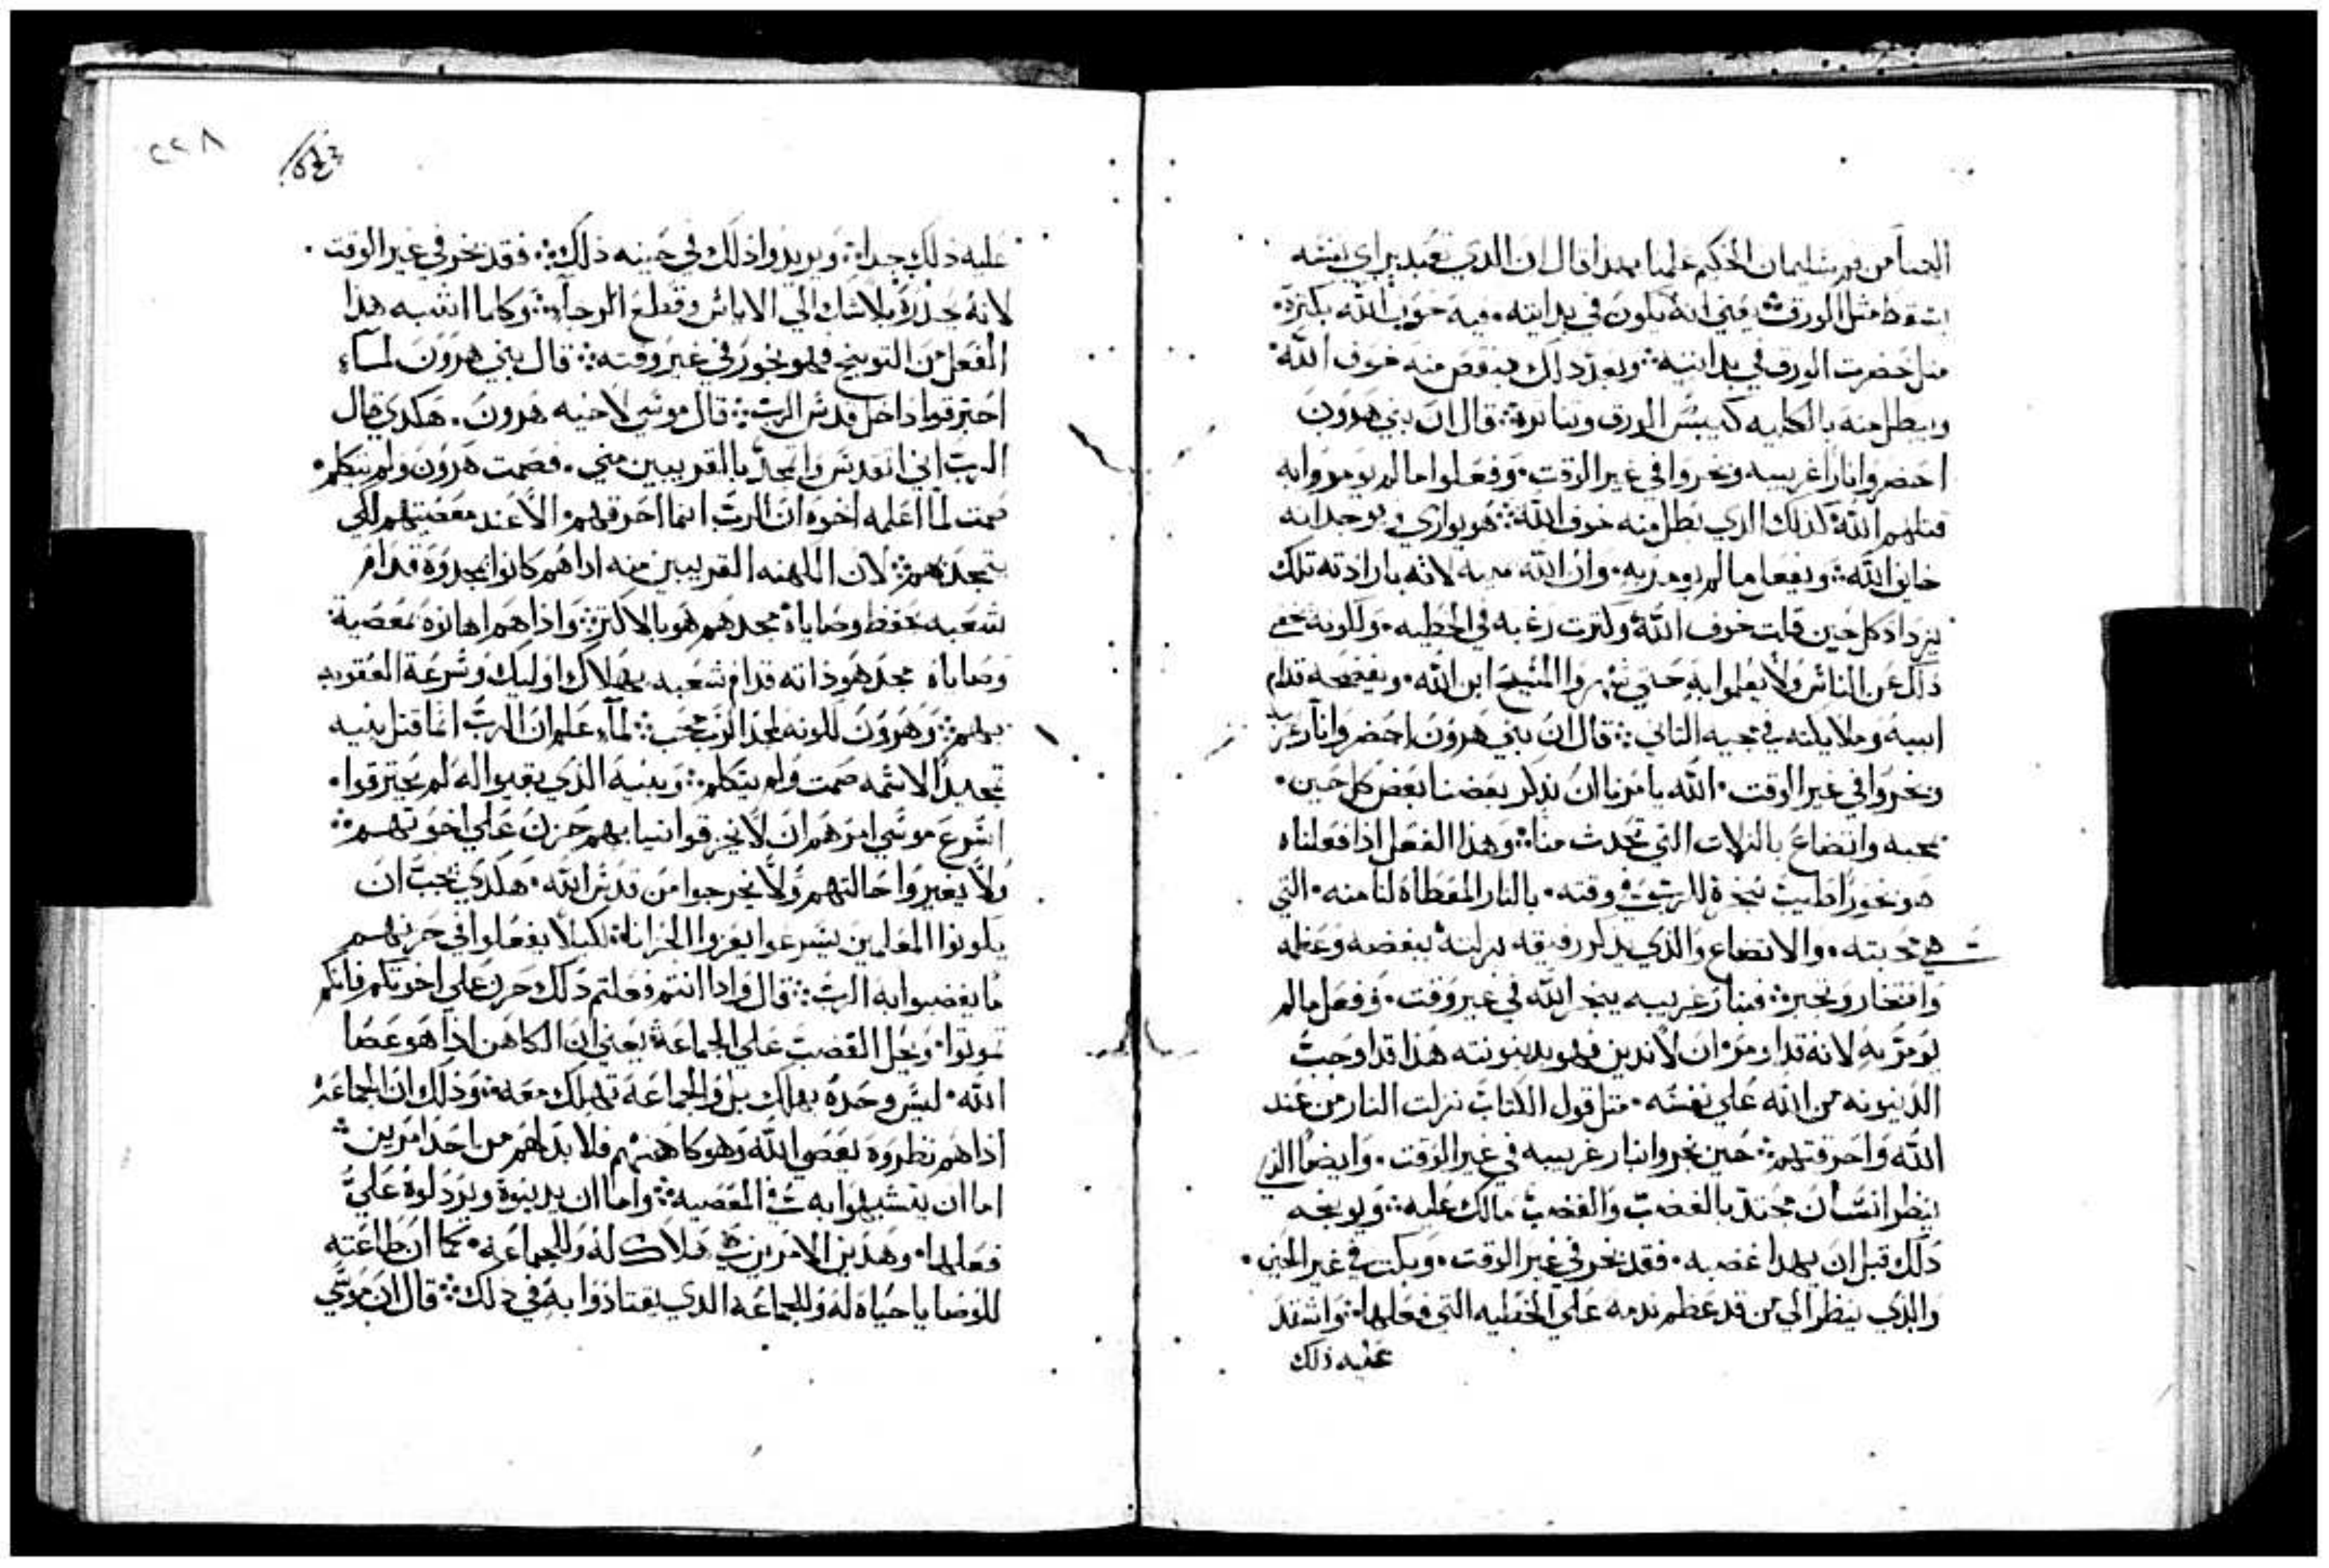 ايضا من فم سليمان الحكيم علمنا بهدا قال ان الدي تعبد براي نفسه
يسقط مثل الورق يعني انه يكون في بدايته فيه خوف الله بكتره
متل خضرت الورق في بدايته وبعد دلك ينقص منه خوف الله
ويبطل منه بالكليه كيبس الورق وتناتره قال ان بني هرون
احضروا نارا غريبه وبخروا في غير الوقت وفعلوا ما لم يومروا به
قتلهم الله كدلك الدي بطل منه خوف الله هو يواري ويوجد انه
خايف الله ويفعل ما لم يومر به وان الله لانه بارادته تلك
يزداد كل حين قلت خوف الله وكترت رغبه في الخطيه ولكونه خفي
دلك عن الناس ولا يعلموا به حتي المسيح ابن الله ويفضحه قدام
ابيه وملايكته في مجيه التاني قال ان بني هرون احضروا نار
وبخروا في غير الوقت الله يامرنا ان يدكر بعضنا بعض كل حين
بمحبه واتضاع بالزلات التي تحدث منا وهذا الفعل اذا فعلناه
هو بخورا طيب نبخره للرب في وقته بالنار المعطاه لنا منه التي
هي محبته والاتضاع والذي يدكر رفيقه بزلته ببغضه وعظمه
وافتخار وتجبر فبنار غريبه يبخر الله في غير وقت وفعل ما لم
يومر به لانه قد اومر ان لا ندين فهو بدينونته هذا قد اوجب
الدينونه من الله علي نفسه متل قول الكتاب نزلت النار من عند
الله واحرقتهم حين بخروا بنار غريبه في غير الوقت وايضا الذي
ينظر انسان محتد بالغضب والغضب مالك عليه ويوبخه
دلك قبل ان يهدا غضبه فقد بخر في غير الوقت وبكت في غير الحين
والدي ينظر الي من قد عظم ندمه علي الخطيه التي فعلها واشتد
عليه ذلك
٢٢٨
عليه ذلك جدا ويزيدوا ذلك في حينه ذلك فقد بخر في غير الوقت
لانه يحدره بلا شك الي الاياس وقطع الرجا وكلما اشبه هذا
الفعل من التوبيخ فهو بخور في غير وقته قال بني هرون لما
احترقوا داخل قدس الرب قال موسي لاخيه هرون هكدي قال
الرب اني اتقدس واتمجد بالقريبين مني فصمت هرون ولم يتكلم
صمت لما اعلمه اخوه ان الرب انما احرقهم الا عند معصيتهم لكي
يتمجد بهم لان الكهنه القريبين منه اداهم كانوا يمجدوه قدام
شعبه بحفظ وصاياه مجدهم هو بالاكتر واذا هم اهانوه بمعصية
وصاياه مجد هو ذاته قدام شعبه بهلاك اوليك وسرعة العقوبه
بهم وهرون لكونه لمجد الرب محب لما علم ان الرب انما قتل بنيه
تمجيدا لاسمه صمت ولم يتكلم وبنيه الذي بقيوا له لم يحترقوا
اسرع موسي امرهم ان لا يخرقوا تيابهم حزن علي اخوتهم
ولا يغيروا حالتهم ولا يخرجوا من قدس الله هكدي يجب ان
يكونوا المعلمين يسرعوا يعزوا الحزانا لكيلا يفعلوا في حزنهم
ما يغضبوا به الرب قال وادا انتم فعلتم دلك حزن علي اخوتكم فانكم
تموتوا ويحل الغضب علي الجماعه يعني ان الكاهن اذا هو عصا
الله ليس وحده يهلك بل والجماعه تهلك معه وذلك ان الجماعه
اذا هم نظروه يعصي الله وهو كاهنهم فلا بد لهم من احد امرين
اما ان يتشبهوا به في المعصيه واما ان يدينوه ويزدلوه علي
فعلها وهدين الامرين هلاك له وللجماعه كما ان طاعته
للوصايا حياه له وللجماعه الدي يقتادوا به في ذلك قال ان موسي